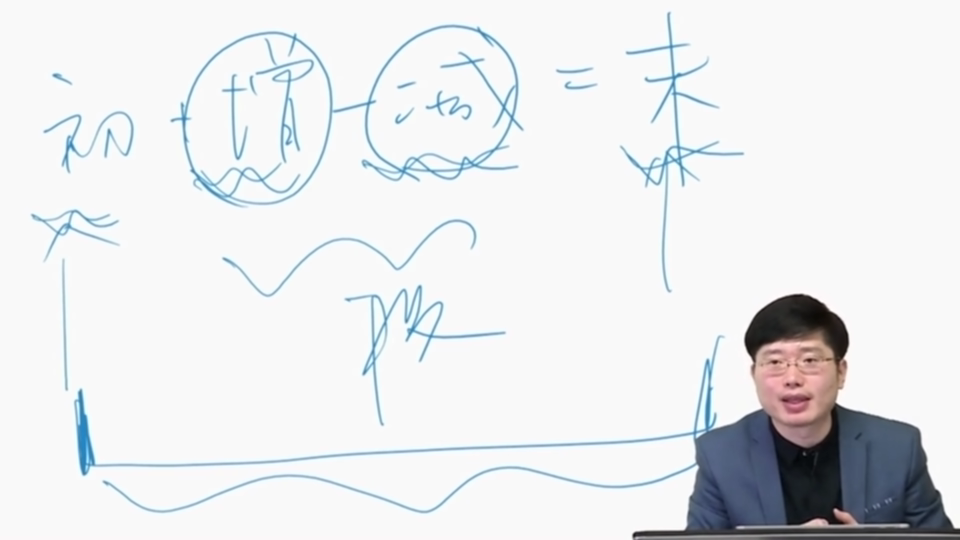 初 + 增 - 减 = 末